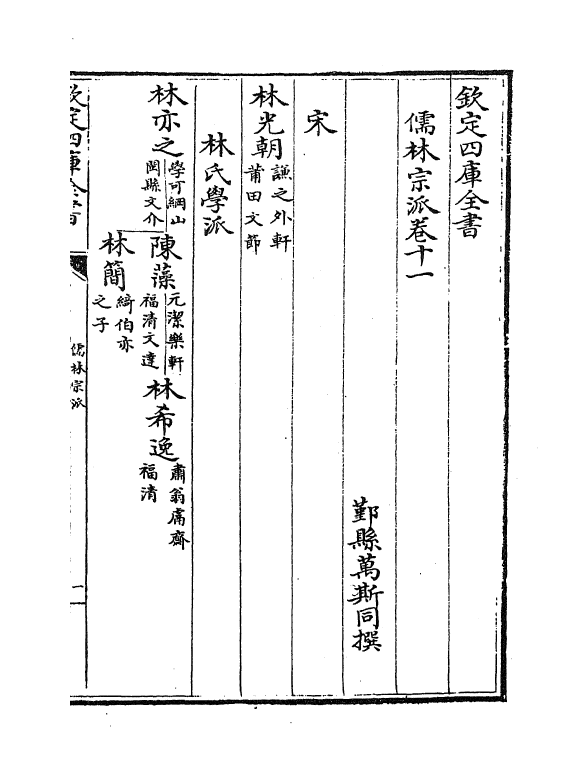 欽定四庫全書
儒林宗派卷十一
鄞縣萬斯同撰
宋
林光朝
謙之艾軒
莆田文節
林氏學派
林亦之
學可綱山
閩縣文介
陳藻
元潔樂軒
福清文逹
林希逸
肅翁鬳齋
福清
林簡
綺伯亦
之子
欽定四庫全書
儒林宗派
一